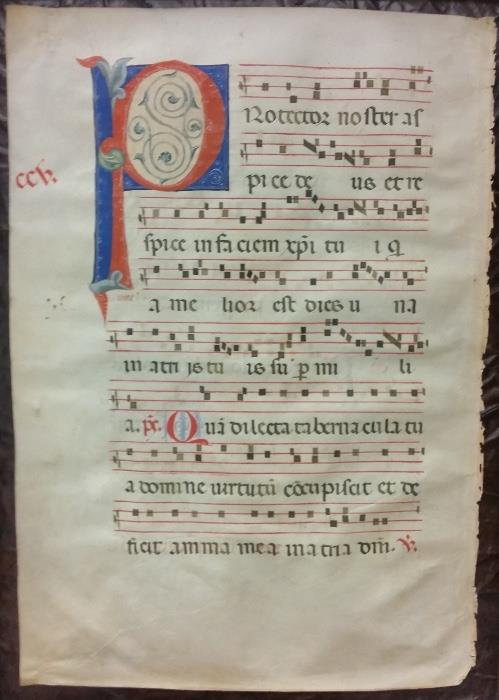 PRotector noster as
pi ce de us et re
spice in fa ciem xp̄i tu i q̄
a me lior est dies u na
in atri is tu is su ꝑ mi li
a. p̄s. Quā dilecta tabernacula tu
a domine uirtutū cōcupiscit et de
ficit anima mea in atria dn̄i. ℣.
ccv.